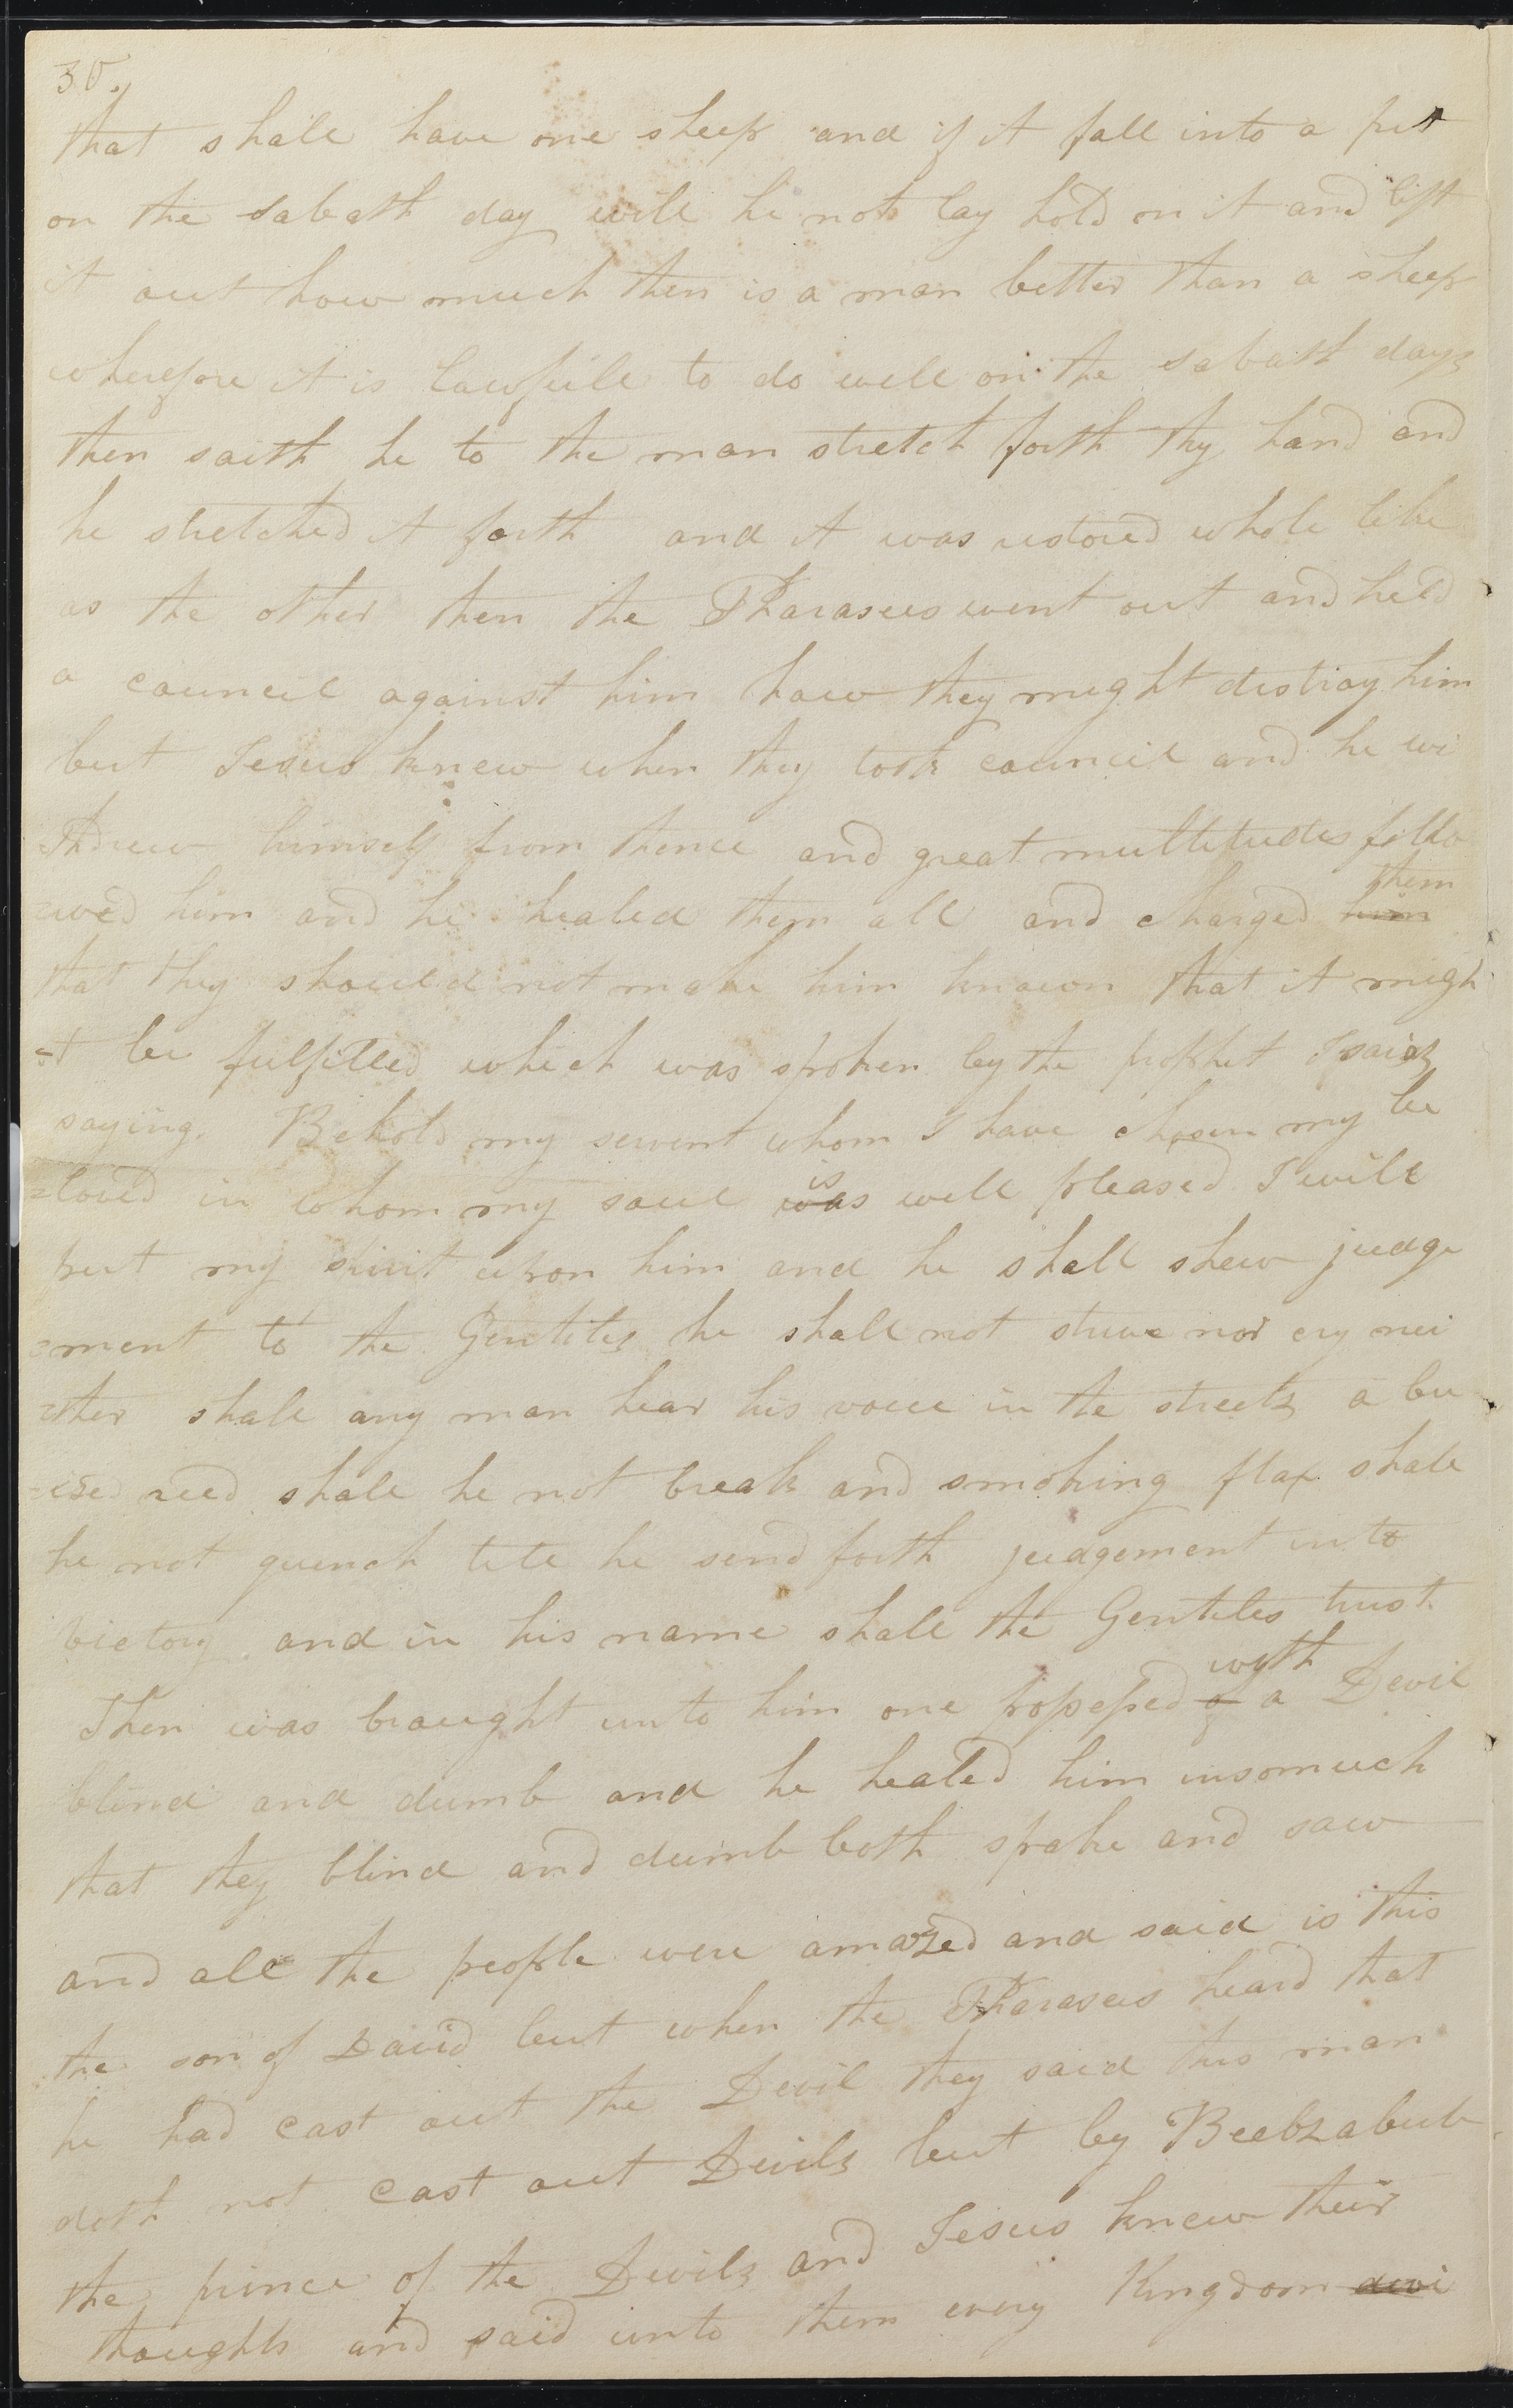 30.
that shall have one sheep and if it fall into a pit
on the sabath day will he not lay hold on it and lift
it out how much then is a man better than a sheep
wherefore it is lawfull to do well on the sabath days
then saith he to the man stretch forth thy hand and
he stretched it forth and it was restored whole like
as the other then the Pharasees went out and held
a council against him how they might distroy him
but Jesus knew when they took council and he wi
thdrew himself from thence and great multitudes follo
=wed him and he healed them all and charged him them
that they should not make him known that it migh
=t be fulfilled which was spoken by the prophet Isaiah
saying. Behold my servent whom I have chosen my be
=loved in whom my soul was is well pleased I will
put my spirit upon him and he shall shew judge
=ment to the Gentiles he shall not strive nor cry nei
=ther shall any man hear his voice in the streets a bu
=ised reed shall he not break and smoking flax shall
he not quench till he send forth judgement unto
victory and in his name shall the Gentiles trust
Then was brought unto him one possessed of with a Devil
blind and dumb and he healed him insomuch
that they blind and dumb both spake and saw
and all the people were amazed and said is this
the son of David but when the Pharasees heard that
he had cast out the Devil they said this man
doth not cast out Devils but by Beelzabub
the prince of the Devils and Jesus knew their
thoughts and said unto them every Kingdom devi